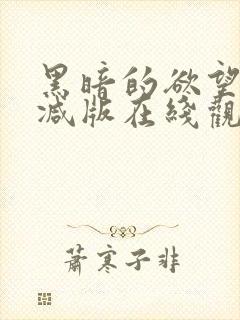 黑暗的欲望
减版在线觀
蕭寒子非